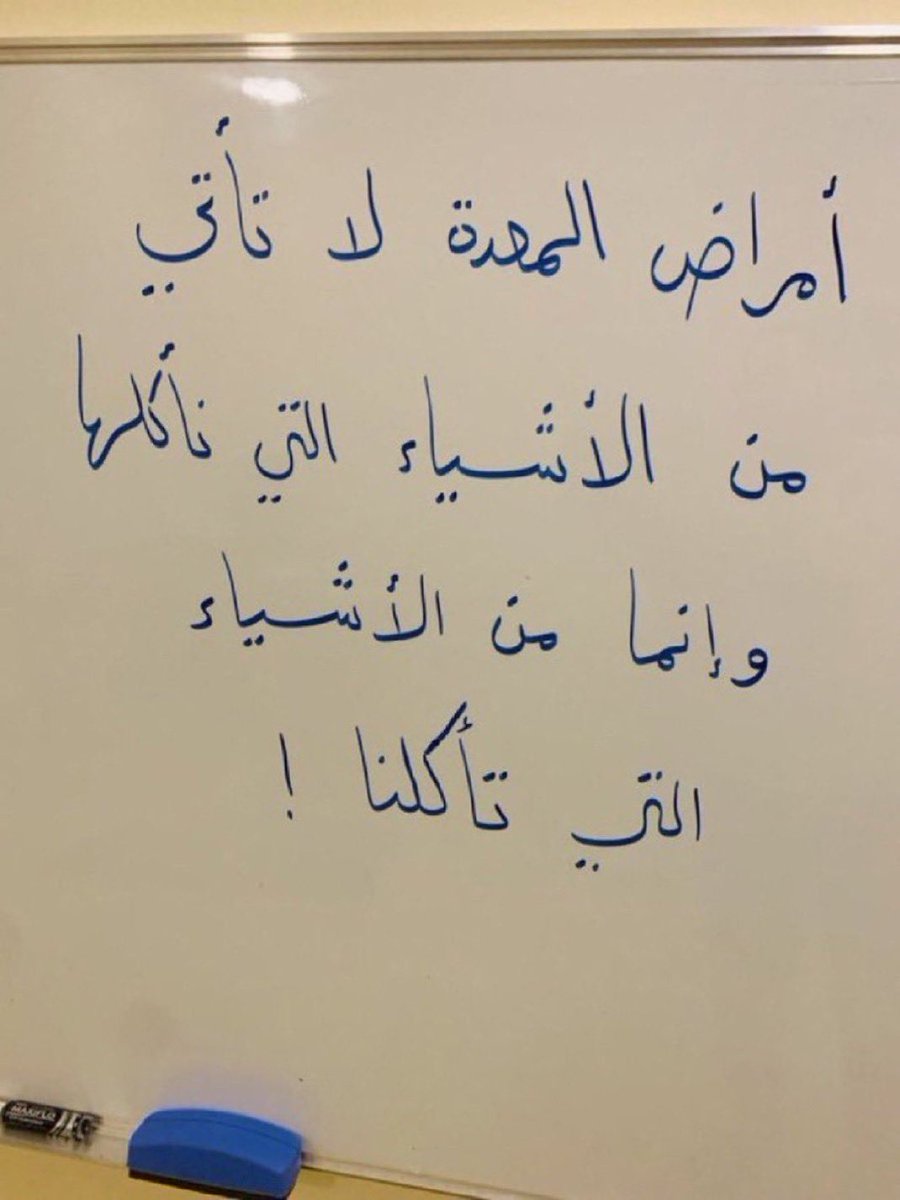 أمراض المعدة لا تأتي
من الأشياء التي نأكلها
وإنما من الأشياء
التي تأكلنا !